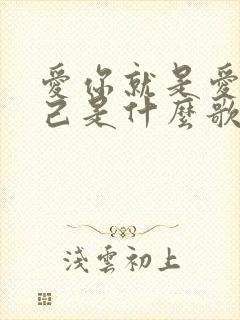 愛你就是愛
己是什麼歌
淺雲初上